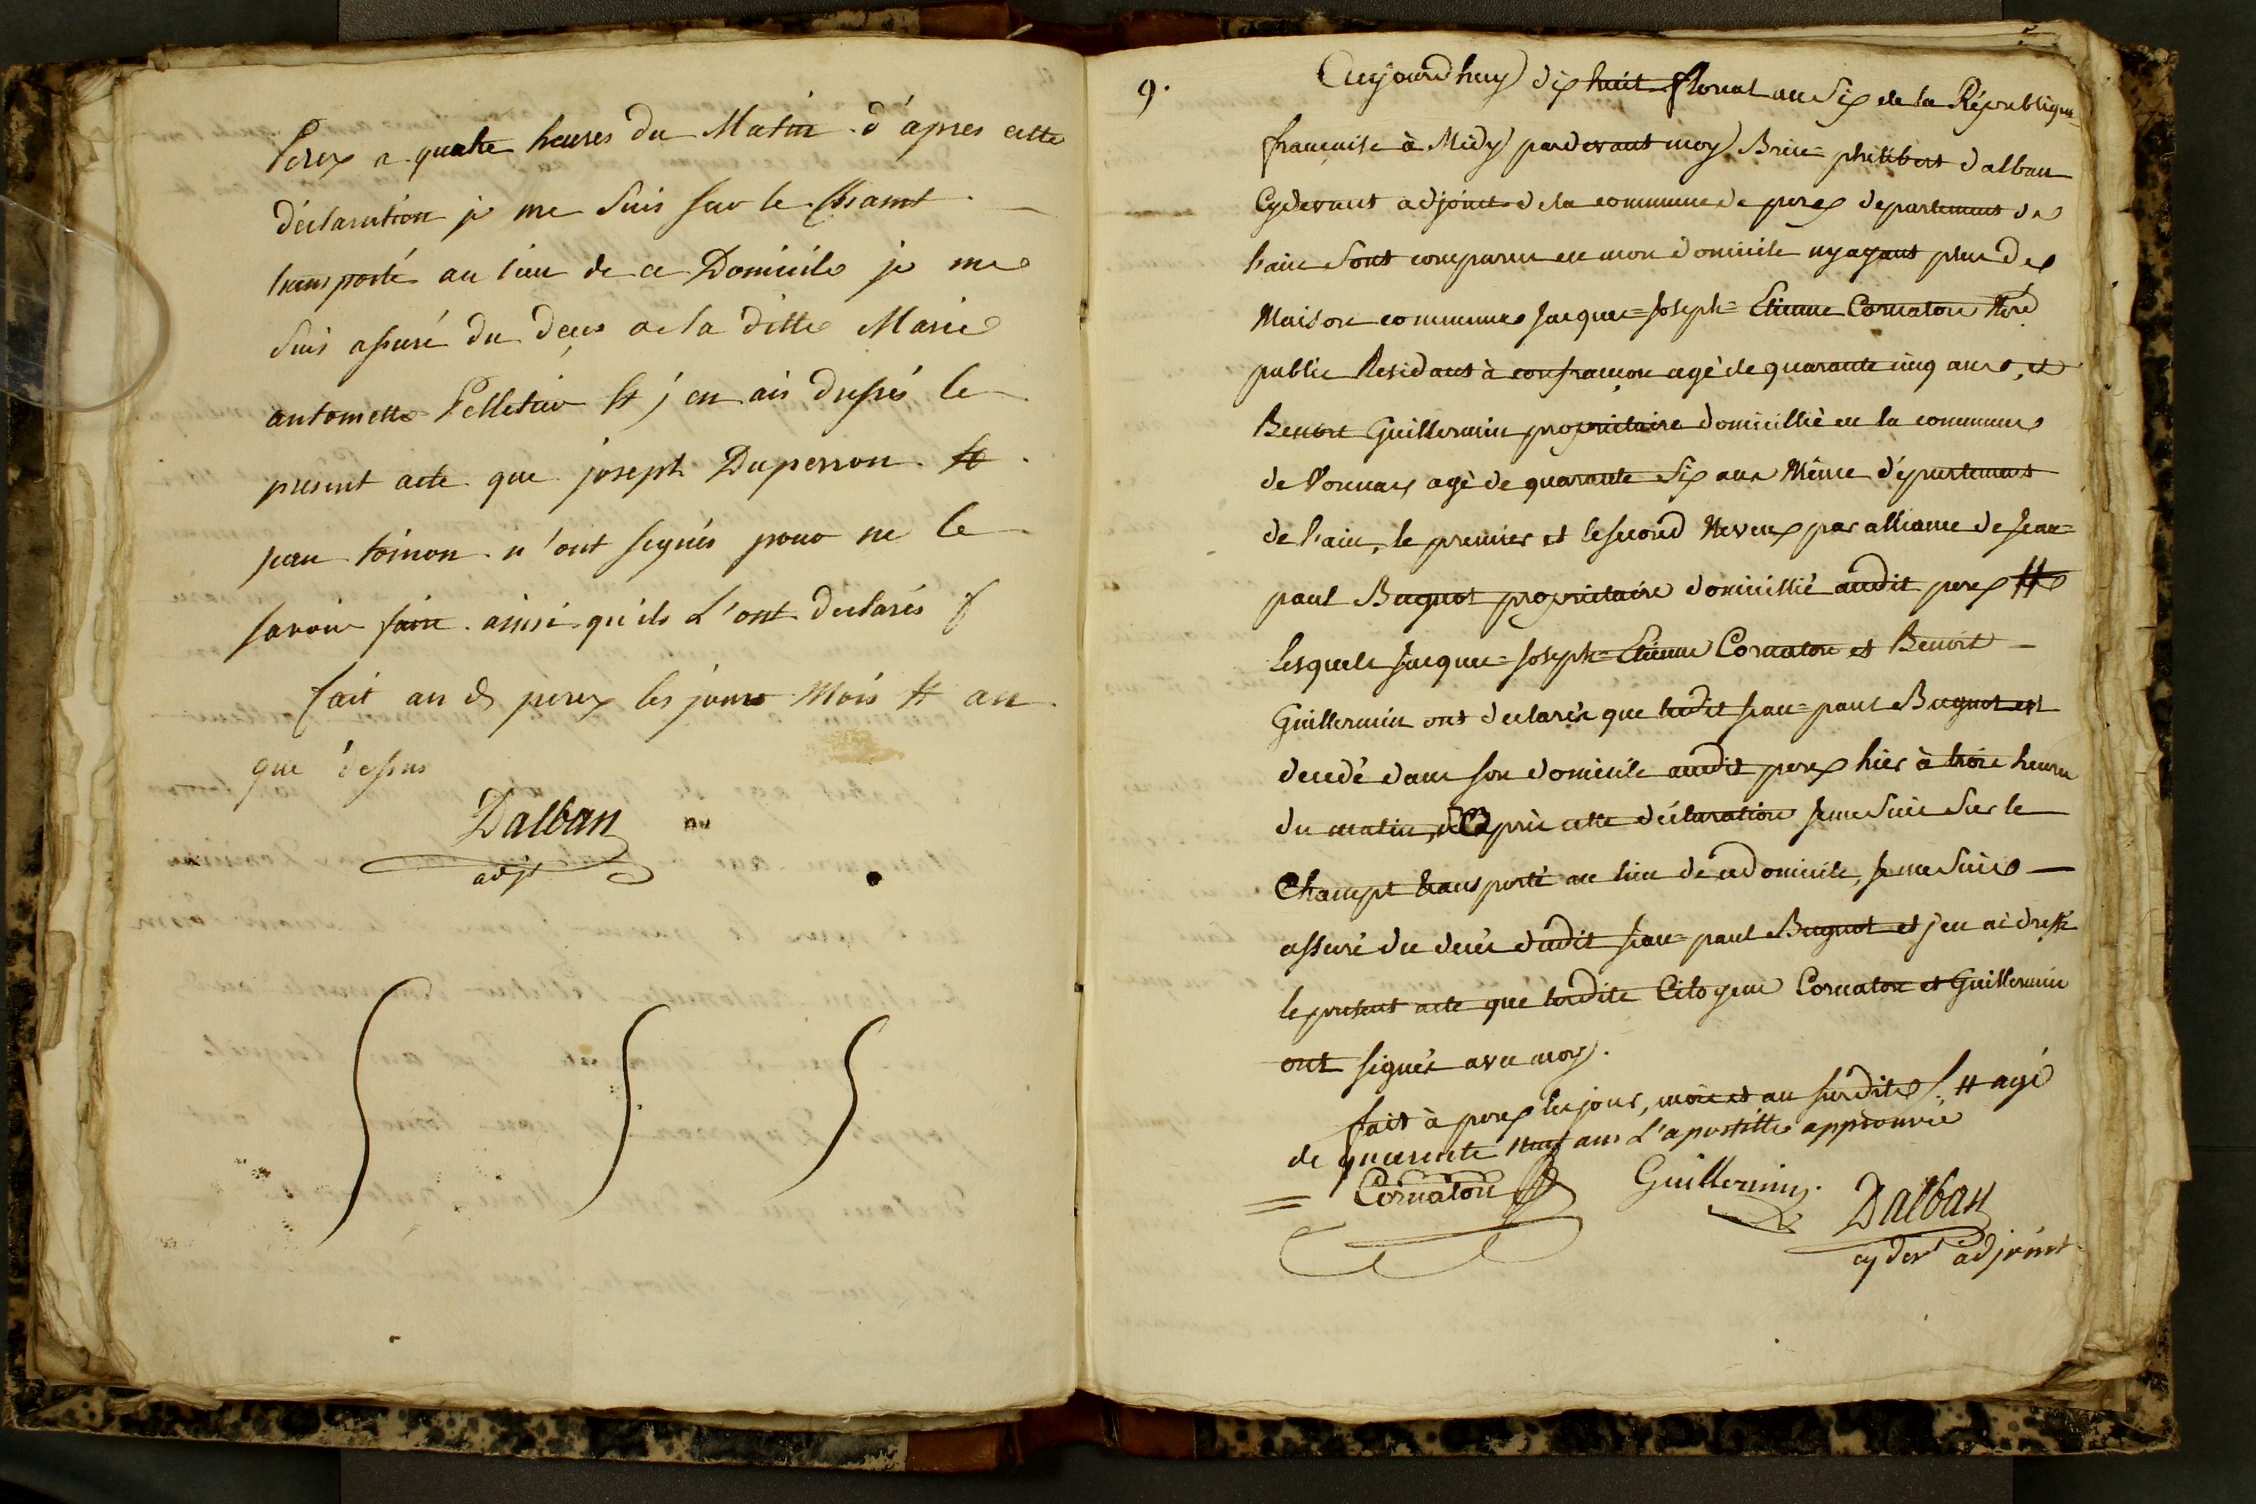 Perex a quatre heures du Matin d'apres cette
déclaration je me suis sur le Champt
transporté au lieu de ce Domicile je me
suis assuré du deces de la ditte Marie
antoinette Pelletier et j'en ais dressés le
present acte que joseph Duperron et
jean toinon n'ont signés pour ne le
savoir faire ainsi qu'ils L'ont declarés
fait au dt perex les jours Mois et an
que dessus
Dalban
adjt
9.
Aujourdhuy dix huit floreal an Six de la République
francaise à Midy pardevant moy Brice=philibert dalban
Cydevant adjoint de la commune de perex departement de
l'ain Sont comparus en mon domicile ny ayant plus de
Maison commune Jacque=Joseph=Etienne Cornaton Nre
public Residant à confrançon agé de quarante cinq ans, et
Benoit Guillermin propriétaire domicillié en la commune
de Vonnas agé de quarante Six ans Même département
de l'ain, le premier et le second Neveux par alliance de Jean=
paul Bugnot propriétaire domicillié audit perex #
Lesquels Jacque=Joseph=Etienne Cornaton et Benoit
Guillermin ont declarés que ledit Jean=paul Bugnot est
decedé dans son domicile audit perex hier à trois heures
du matin, d'Après cette déclaration Je me Suis Sur le
Champt transporté au lieu de ce domicile, Je me Suis
assuré du decés dudit Jean=paul Bugnot et j'en ai dressé
le present acte que lesdits Citoyens Cornaton et Guillermin
ont signés avec moy.
fait à perex les jour, mois et an susdits /. # agé
de quarente neuf ans L'apostille approuvée
Cornaton Guillermin. Dalban
cy devt adjoint